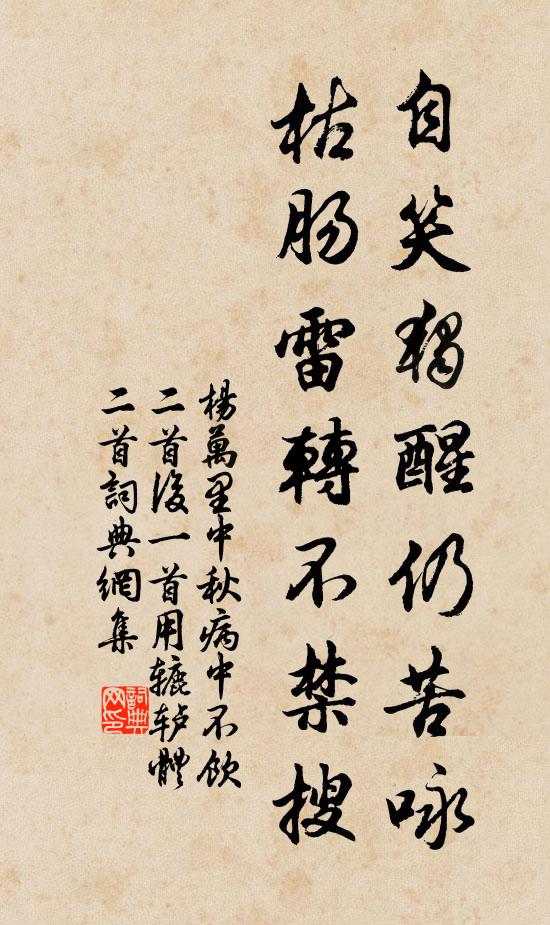 自笑獨醒仍苦咏
枯肠雷轉不禁搜
楊萬里中秋病中不飲
二首後一首用辘轳體
二首詞典網集
詞典网印